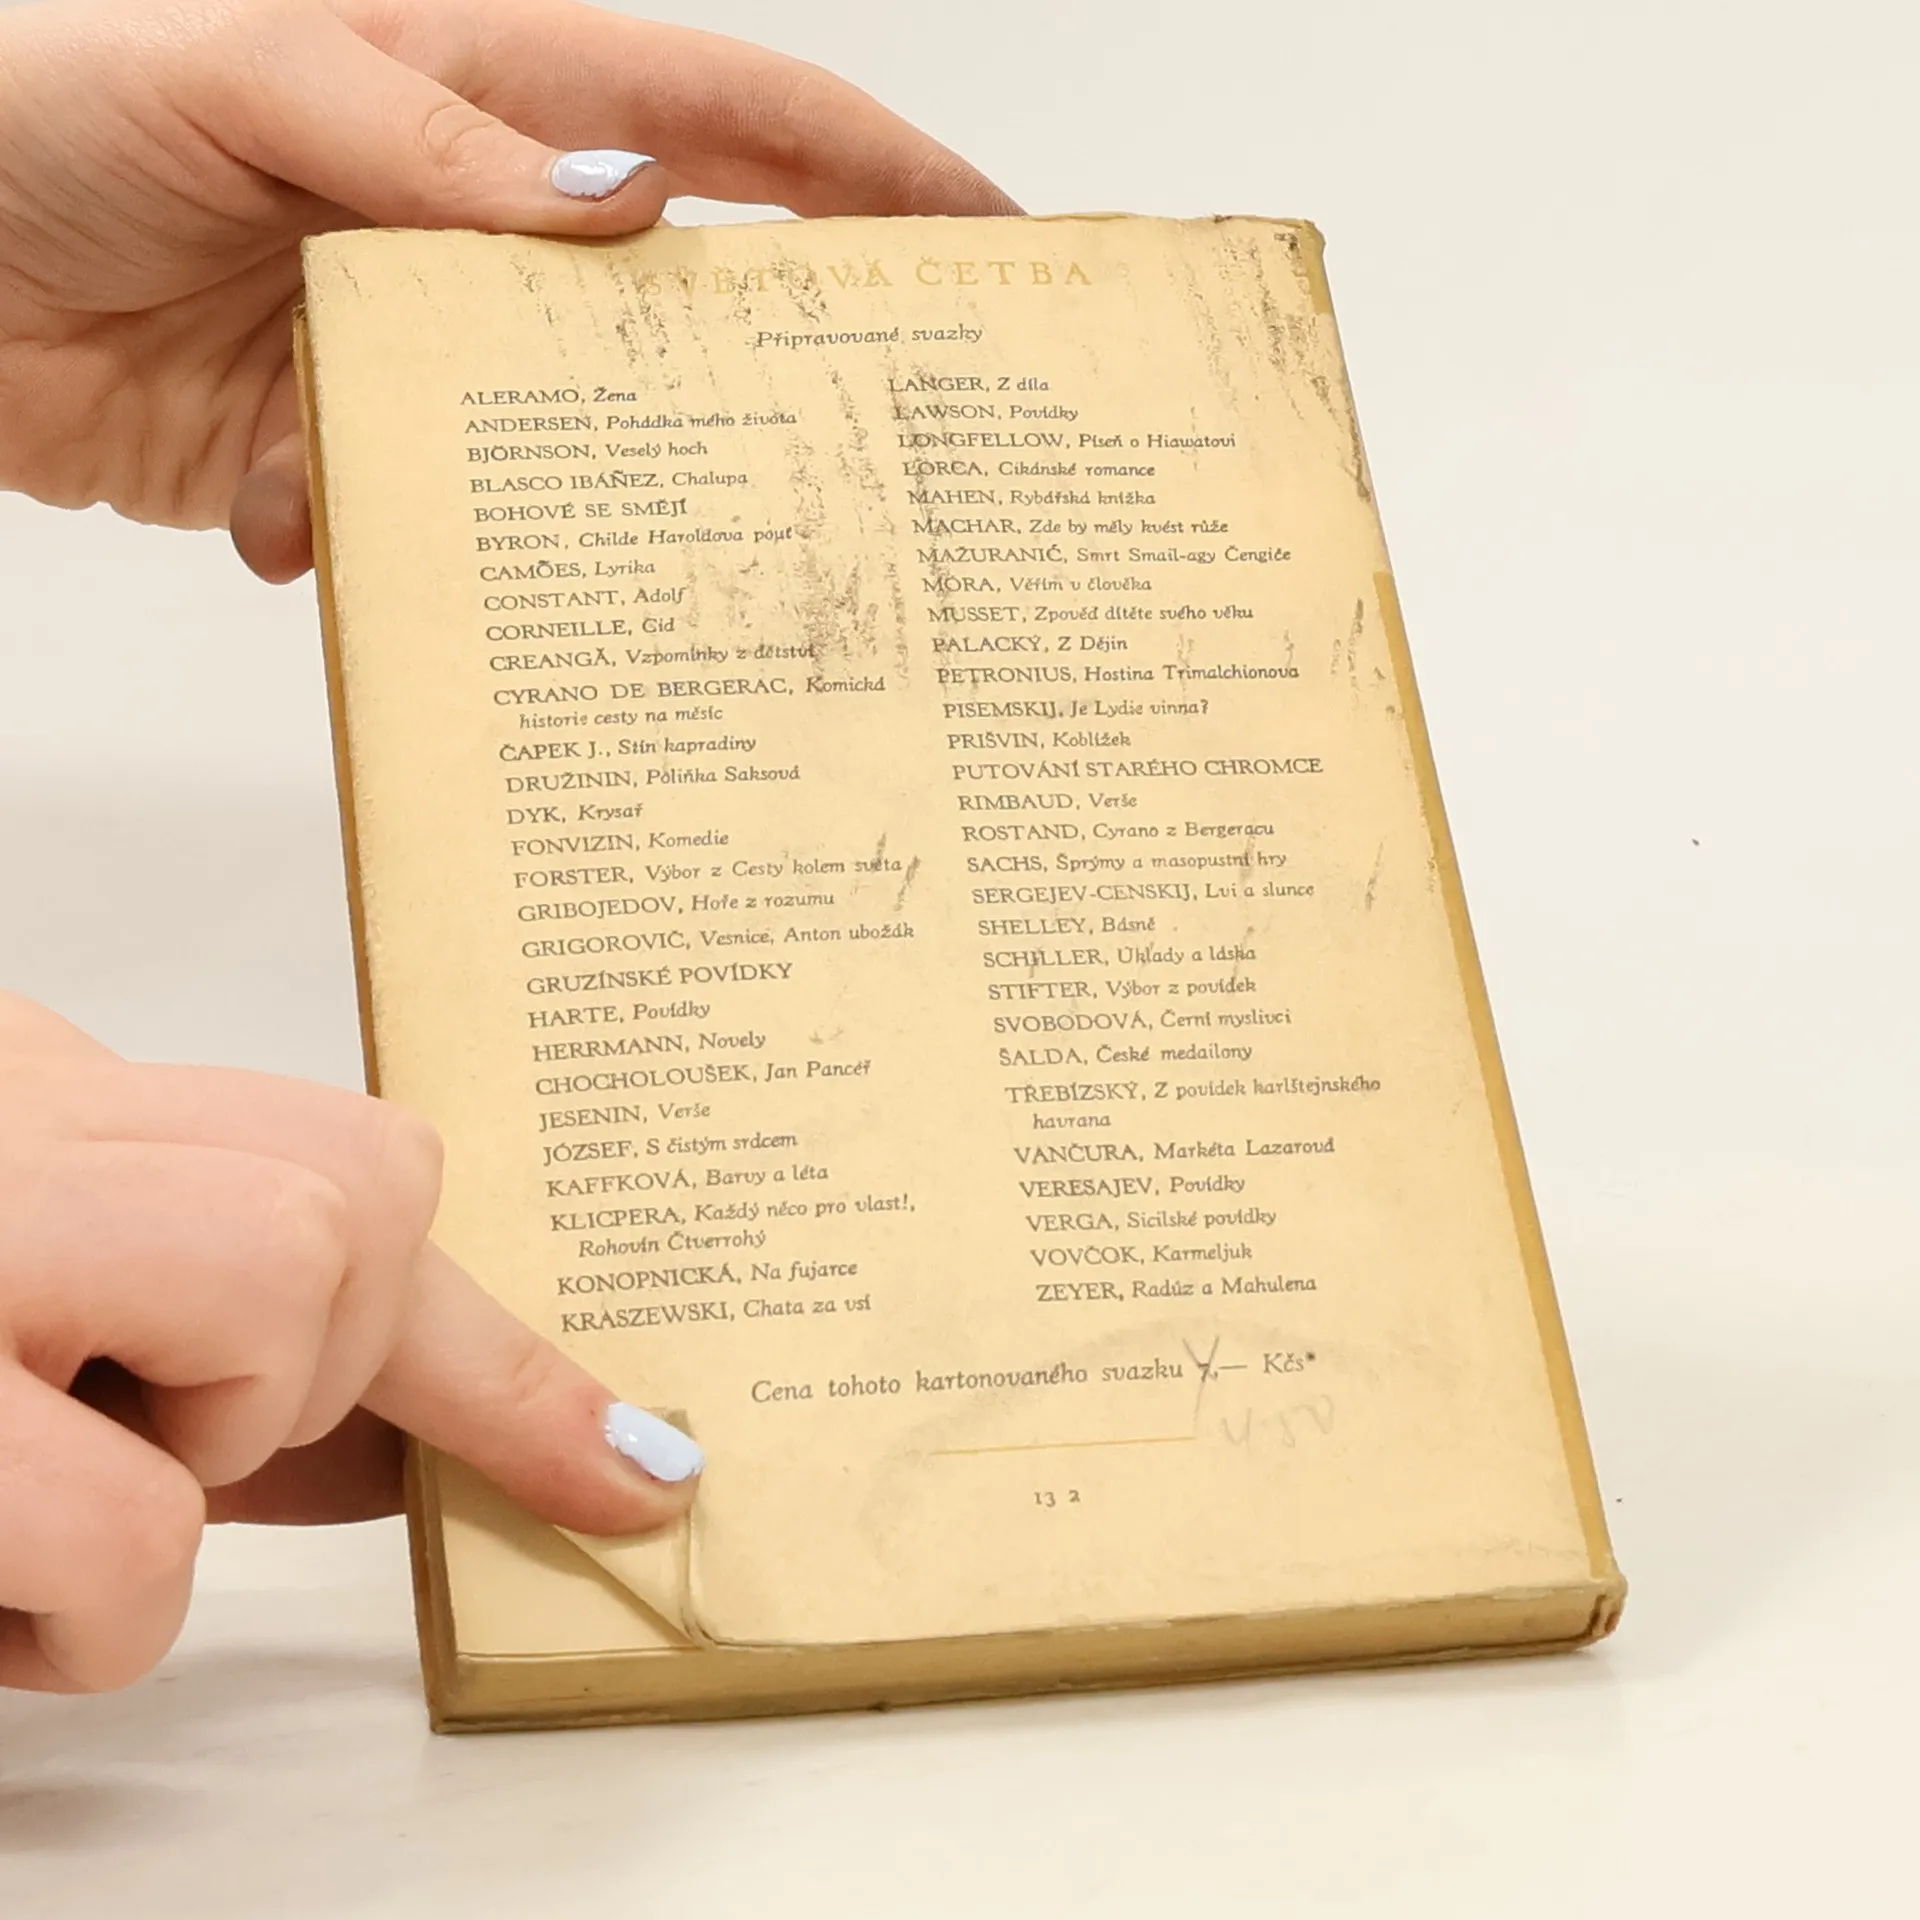 SVĚTOVÁ ČETBA
Připravované svazky
ALERAMO, Žena
ANDERSEN, Pohádka mého života
BJÖRNSON, Veselý hoch
BLASCO IBÁÑEZ, Chalupa
BOHOVÉ SE SMĚJÍ
BYRON, Childe Haroldova pouť
CAMÕES, Lyrika
CONSTANT, Adolf
CORNEILLE, Cid
CREANGĂ, Vzpomínky z dětství
CYRANO DE BERGERAC, Komická
historie cesty na měsíc
ČAPEK J., Stín kapradiny
DRUŽININ, Poliňka Saksová
DYK, Krysař
FONVIZIN, Komedie
FORSTER, Výbor z Cesty kolem světa
GRIBOJEDOV, Hoře z rozumu
GRIGOROVIČ, Vesnice, Anton ubožák
GRUZÍNSKÉ POVÍDKY
HARTE, Povídky
HERRMANN, Novely
CHOCHOLOUŠEK, Jan Pancéř
JESENIN, Verše
JÓZSEF, S čistým srdcem
KAFFKOVÁ, Barvy a léta
KLICPERA, Každý něco pro vlast!,
Rohovín Čtverrohý
KONOPNICKÁ, Na fujarce
KRASZEWSKI, Chata za vsí
LANGER, Z díla
LAWSON, Povídky
LONGFELLOW, Píseň o Hiawatovi
LORCA, Cikánské romance
MAHEN, Rybářská knížka
MACHAR, Zde by měly kvést růže
MAŽURANIĆ, Smrt Smail-agy Čengiće
MÓRA, Věřím v člověka
MUSSET, Zpověď dítěte svého věku
PALACKÝ, Z Dějin
PETRONIUS, Hostina Trimalchionova
PISEMSKIJ, Je Lydie vinna?
PRIŠVIN, Koblížek
PUTOVÁNÍ STARÉHO CHROMCE
RIMBAUD, Verše
ROSTAND, Cyrano z Bergeracu
SACHS, Šprýmy a masopustní hry
SERGEJEV-CENSKIJ, Lvi a slunce
SHELLEY, Básně
SCHILLER, Úklady a láska
STIFTER, Výbor z povídek
SVOBODOVÁ, Černí myslivci
ŠALDA, České medailony
TŘEBÍZSKÝ, Z povídek karlštejnského
havrana
VANČURA, Markéta Lazarová
VERESAJEV, Povídky
VERGA, Sicilské povídky
VOVČOK, Karmeljuk
ZEYER, Radúz a Mahulena
Cena tohoto kartonovaného svazku 7,— Kčs*
450
13 2